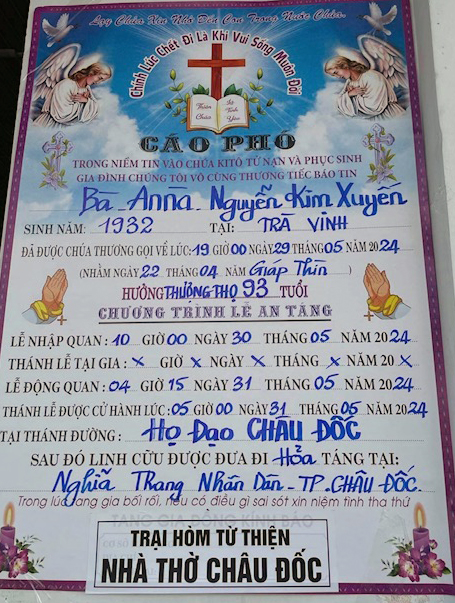 Lạy Chúa Xin Nhớ Đến Con Trong Nước Chúa.
Chính Lúc Chết Đi Là Khi Vui Sống Muôn Đời
Thiên Chúa
Là Tình Yêu
CÁO PHÓ
TRONG NIỀM TIN VÀO CHÚA KITÔ TỬ NẠN VÀ PHỤC SINH
GIA ĐÌNH CHÚNG TÔI VÔ CÙNG THƯƠNG TIẾC BÁO TIN
Bà Anna Nguyễn Kim Xuyến
SINH NĂM: 1932 TẠI: TRÀ VINH
ĐÃ ĐƯỢC CHÚA THƯƠNG GỌI VỀ LÚC: 19 GIỜ 00 NGÀY 29 THÁNG 05 NĂM 2024
(NHẰM NGÀY 22 THÁNG 04 NĂM Giáp Thìn)
HƯỞNG THƯỢNG THỌ 93 TUỔI
CHƯƠNG TRÌNH LỄ AN TÁNG
LỄ NHẬP QUAN: 10 GIỜ 00 NGÀY 30 THÁNG 05 NĂM 2024
THÁNH LỄ TẠI GIA: x GIỜ x NGÀY x THÁNG x NĂM 20 x
LỄ ĐỘNG QUAN: 04 GIỜ 15 NGÀY 31 THÁNG 05 NĂM 2024
THÁNH LỄ ĐƯỢC CỬ HÀNH LÚC: 05 GIỜ 00 NGÀY 31 THÁNG 05 NĂM 2024
TẠI THÁNH ĐƯỜNG: Họ Đạo CHÂU ĐỐC
SAU ĐÓ LINH CỮU ĐƯỢC ĐƯA ĐI Hỏa TÁNG TẠI:
Nghĩa Trang Nhân Dân - TP. CHÂU ĐỐC.
Trong lúc tang gia bối rối, nếu có điều gì sai sót xin niệm tình tha thứ
TANG GIA ĐỒNG KÍNH BÁO
TRẠI HÒM TỪ THIỆN
NHÀ THỜ CHÂU ĐỐC